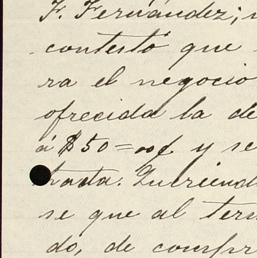 F. Fernández;
contestó que
ra el negocio
ofrecida la de
á $50=00¢ y se
hasta. Queriend
se que al term
do, de compr